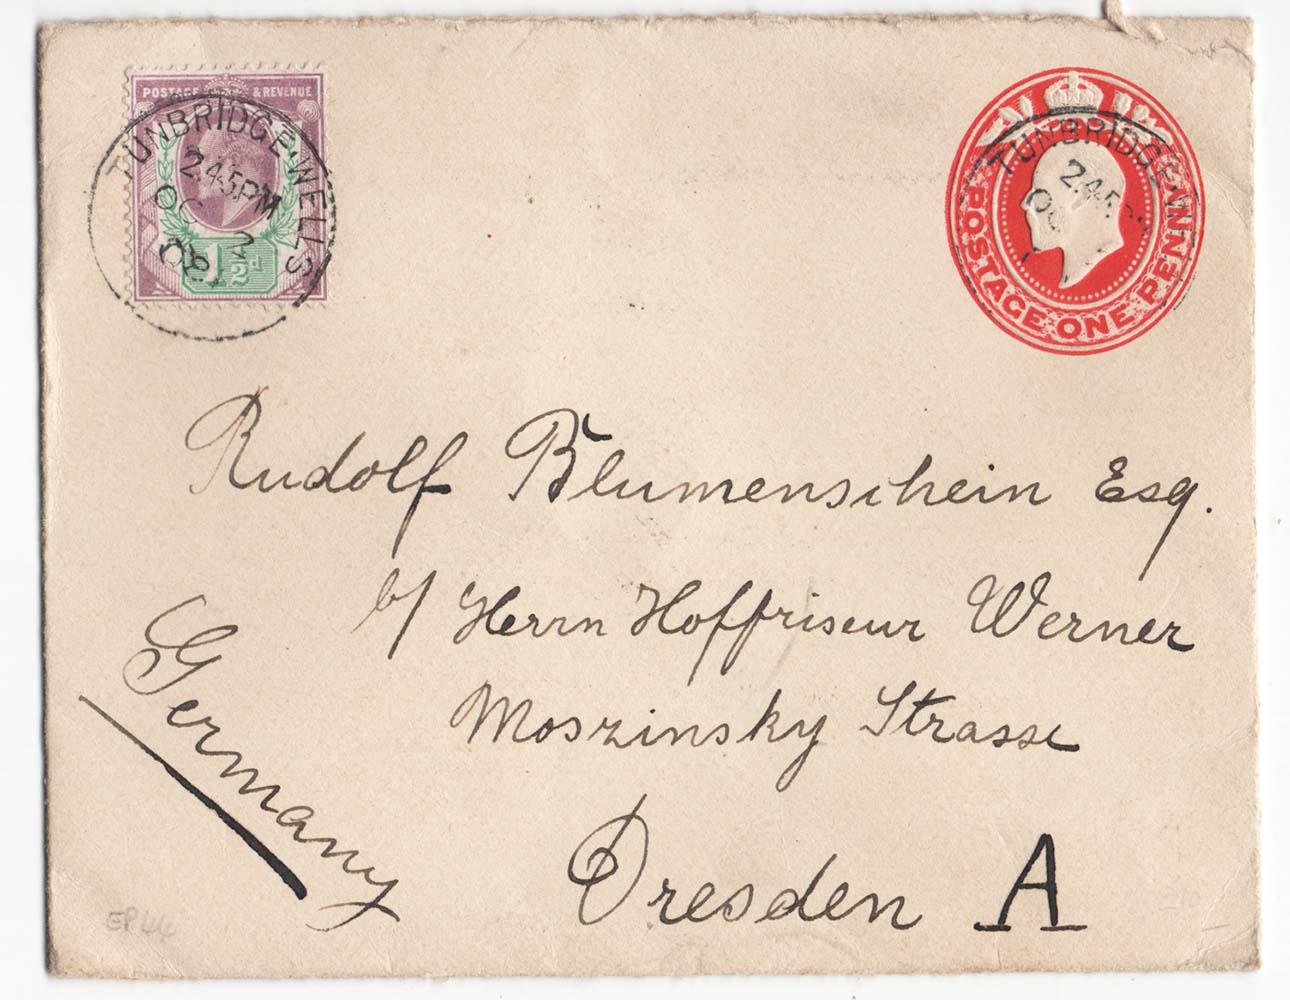 POSTAGE & REVENUE
1½d
TUNBRIDGE·WELLS
2.45PM
OC 2
08
TUNBRIDGE·W
2.45
OC
POSTAGE ONE PENNY
Rudolf Blumenschein Esq.
b/ Herrn Hoffriseur Werner
Moszinsky Strasse
Dresden A
Germany
EP44